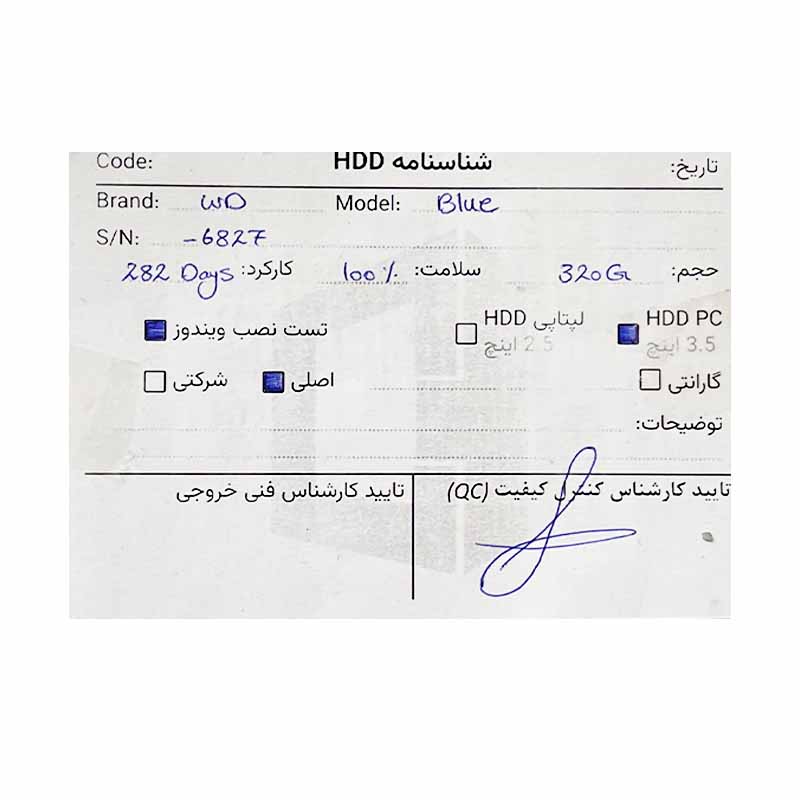 Code: شناسنامه HDD تاریخ:
Brand: WD Model: Blue
S/N: -6827
حجم: 320G سلامت: 100% کارکرد: 282 Days
HDD PC 3.5 اینچ HDD لپتاپی 2.5 اینچ تست نصب ویندوز
گارانتی اصلی شرکتی
توضیحات:
تایید کارشناس کنترل کیفیت (QC) تایید کارشناس فنی خروجی